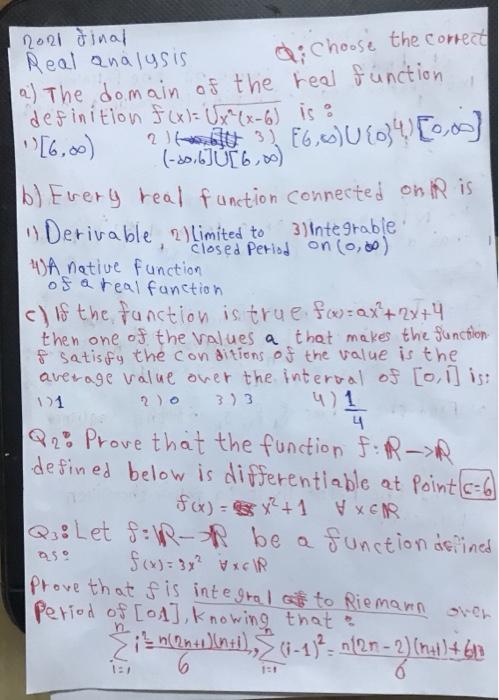 2021 final
Real analysis
Q: Choose the correct
a) The domain of the real function
definition f(x)=√x²(x-6) is :
1) [6,∞) 2) (-∞,6]U[6,∞) 3) [6,∞)U{0} 4) [0,∞]
b) Every real function connected on ℝ is
1) Derivable, 2) limited to closed Period 3) Integrable on (0,∞)
4) A native function
of a real function
c) If the function is true f(x)=ax²+2x+4
then one of the values a that makes the function
f satisfy the conditions of the value is the
average value over the interval of [0,1] is:
1) 1 2) 0 3) 3 4) 1/4
Q2: Prove that the function f: ℝ→ℝ
defined below is differentiable at Point c=6
f(x) = x²+1 ∀ x∈ℝ
Q3: Let f: ℝ→ℝ be a function defined
as: f(x)=3x² ∀x∈ℝ
Prove that f is integral to Riemann over
Period of [01], knowing that :
n∑i=1 i²=n(2n+1)(n+1)/6, n∑i=1 (i-1)²=n(2n-2)(n+1)+6n/6